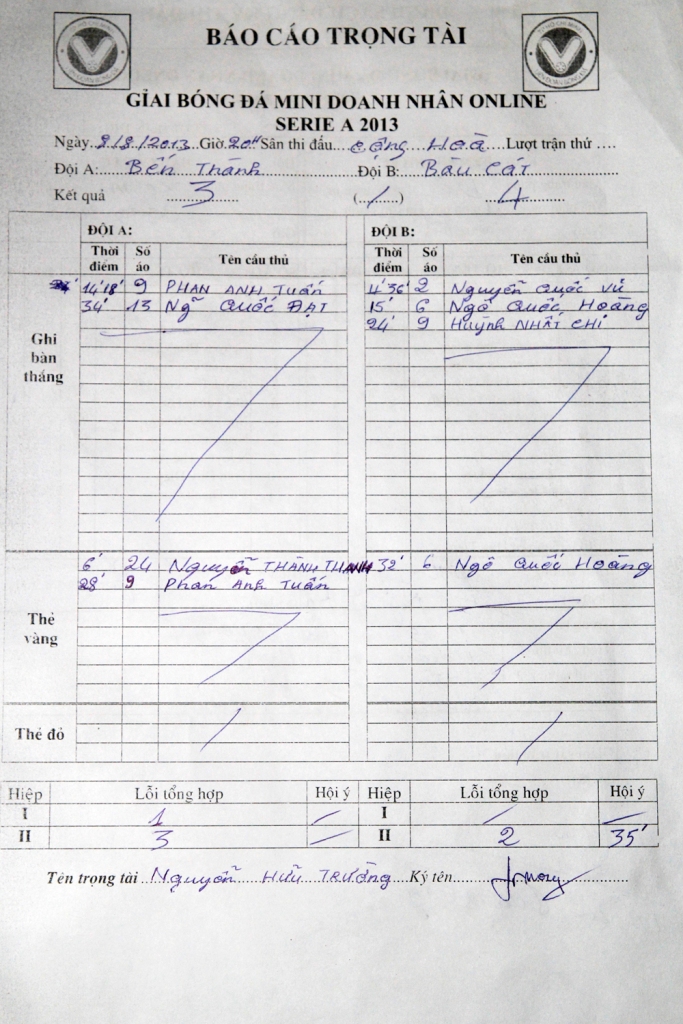 BÁO CÁO TRỌNG TÀI
GIẢI BÓNG ĐÁ MINI DOANH NHÂN ONLINE
SERIE A 2013
Ngày 8/8/2013 Giờ 20H Sân thi đấu Cộng Hoà Lượt trận thứ ....
Đội A: Bến Thành Đội B: Bàu Cát
Kết quả 3 (/) 4
ĐỘI A: ĐỘI B:
Thời điểm Số áo Tên cầu thủ Thời điểm Số áo Tên cầu thủ
Ghi bàn thắng
14' 18' 9 PHAN ANH TUẤN 4' 36' 2 Nguyễn Quốc Vũ
34' 13 Ngỹ Quốc ĐẠT 15' 6 Ngô Quốc Hoàng
24' 9 Huỳnh NHẤT CHI
Thẻ vàng
6' 24 Nguyễn THÀNH THANH 32' 6 Ngô Quốc Hoàng
28' 9 Phan Anh Tuấn
Thẻ đỏ / /
Hiệp Lỗi tổng hợp Hội ý Hiệp Lỗi tổng hợp Hội ý
I 1 / I / /
II 3 / II 2 35'
Tên trọng tài Nguyễn HỮU TRƯỜNG Ký tên